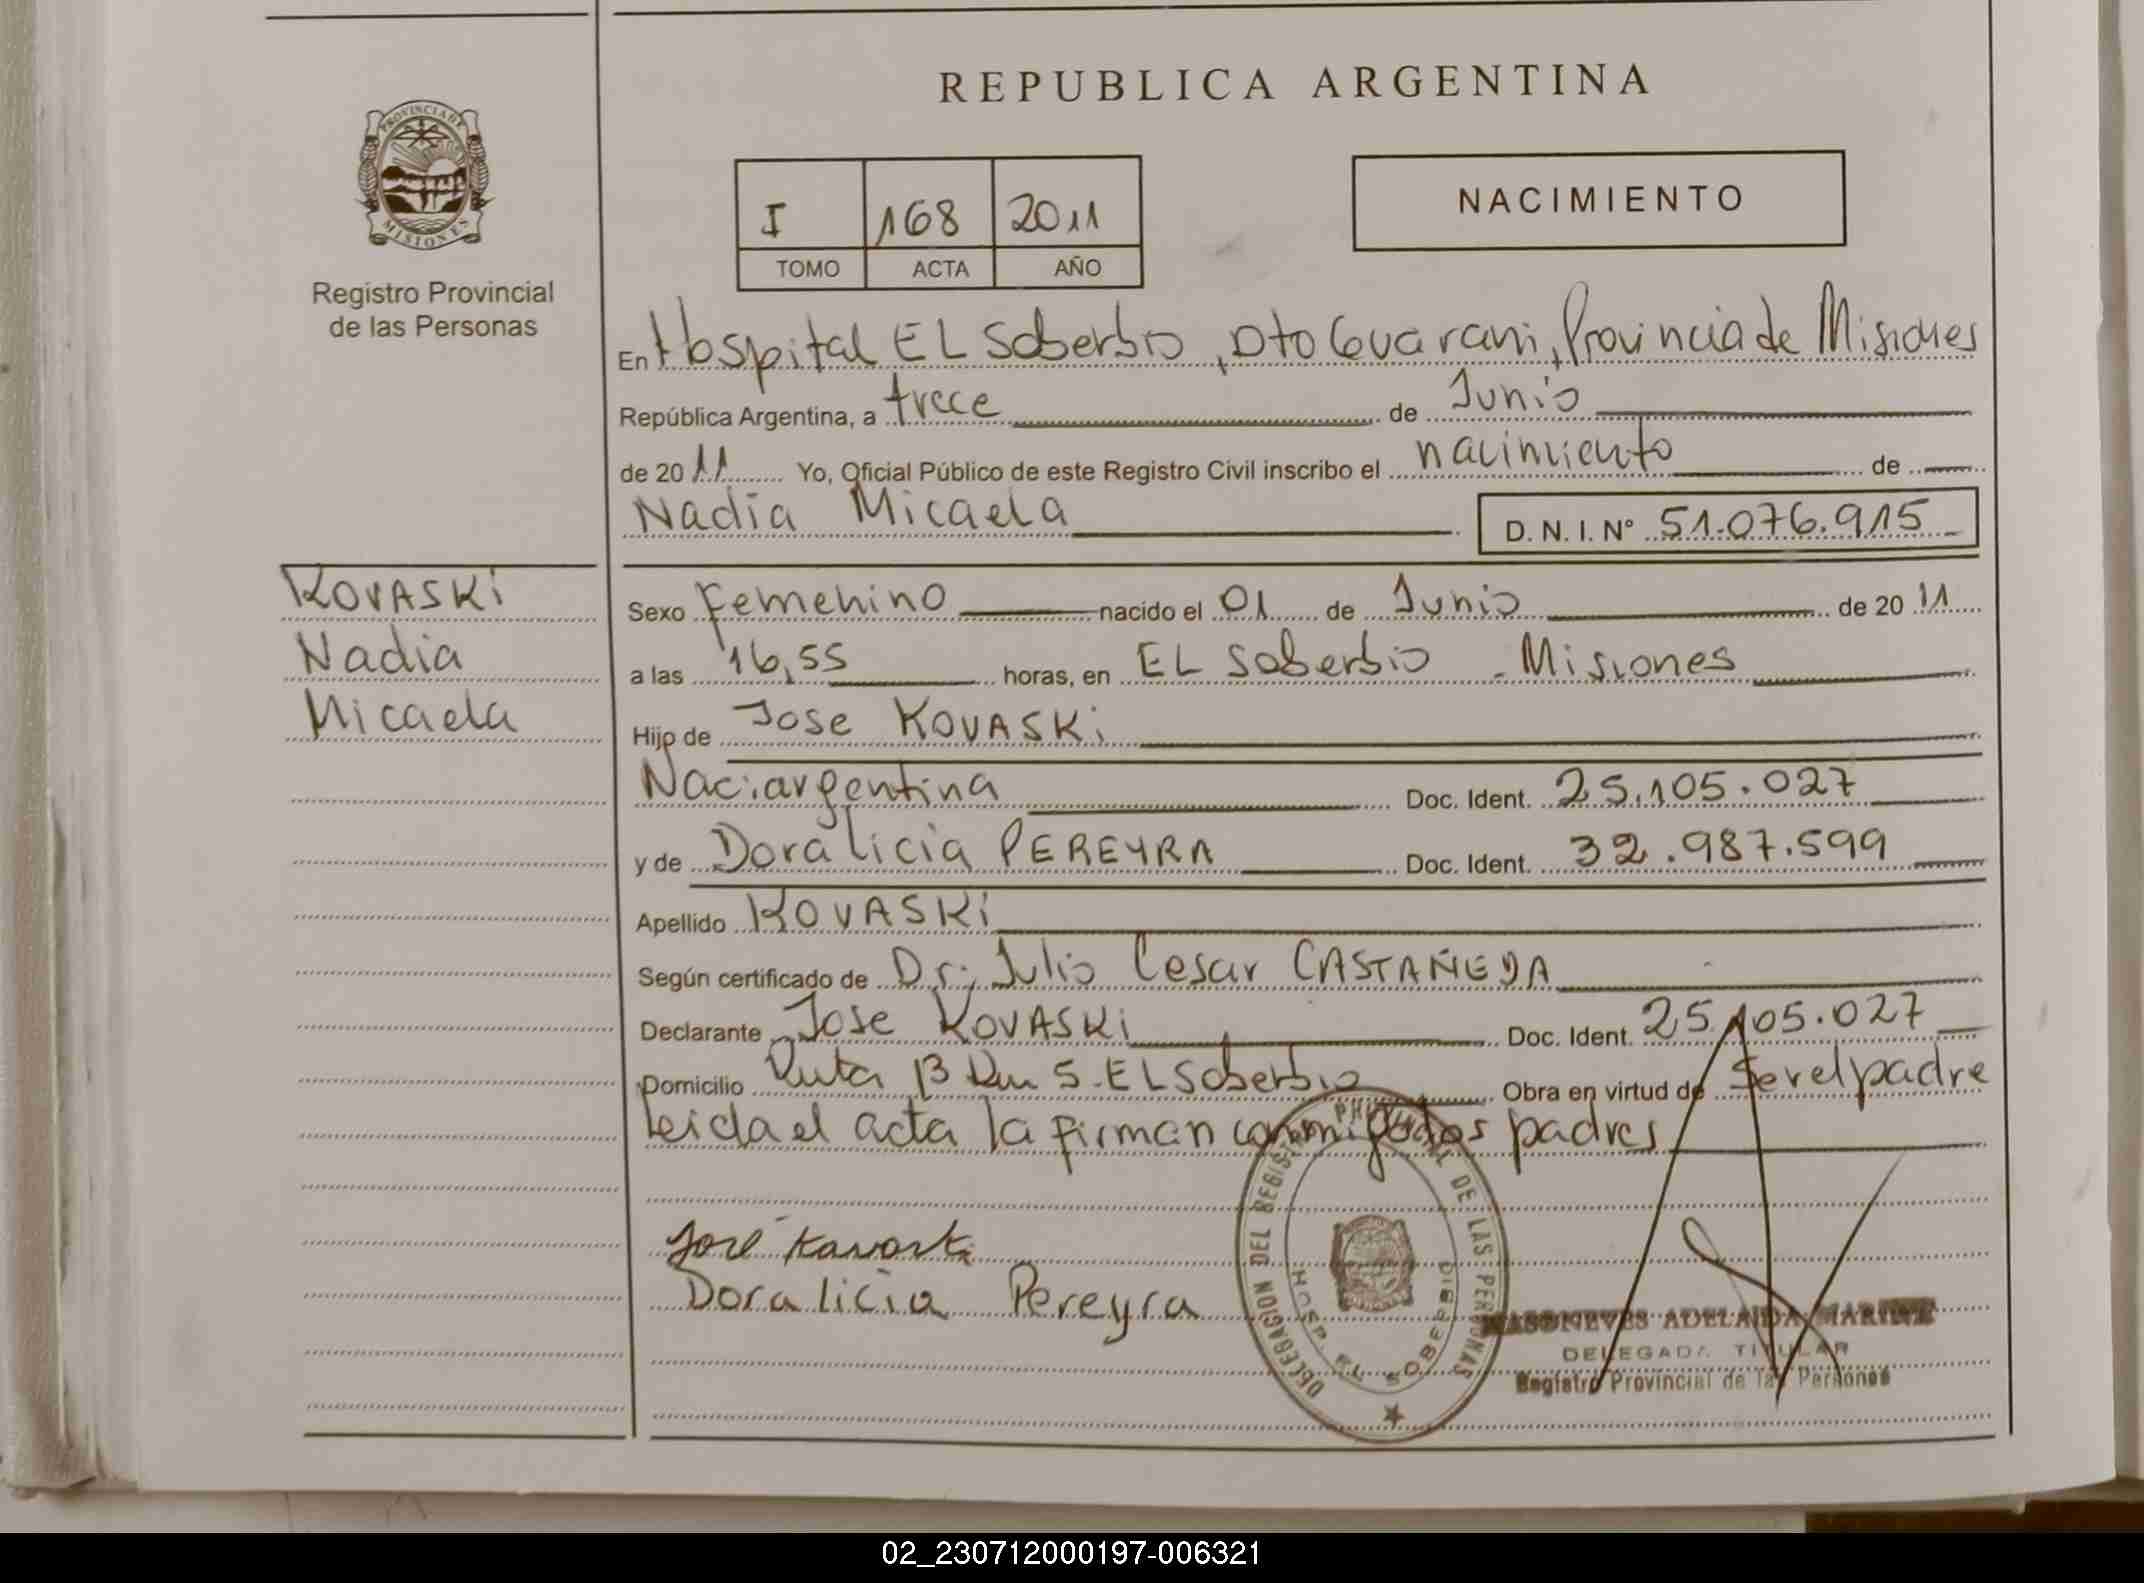 REPUBLICA ARGENTINA
PROVINCIA DE
MISIONES
Registro Provincial
de las Personas
I 168 2011
TOMO ACTA AÑO
NACIMIENTO
En Hospital EL Soberbio, Dto Guarani, Provincia de Misiones
República Argentina, a trece de Junio
de 2011 Yo, Oficial Público de este Registro Civil inscribo el nacimiento de
Nadia Micaela D. N. I. Nº 51.076.915
KOVASKi
Nadia
Micaela
Sexo Femenino nacido el 01 de Junio de 2011
a las 16,55 horas, en EL Soberbio - Misiones
Hijo de Jose KOVASKi
Naci:argentina Doc. Ident. 25.105.027
y de Doralicia PEREYRA Doc. Ident. 32.987.599
Apellido KOVASKi
Según certificado de Dr: Julio Cesar CASTAÑEDA
Declarante Jose KOVASKi Doc. Ident. 25.105.027
Domicilio Ruta 13 Km 5 - EL Soberbio Obra en virtud de ser el padre
leida el acta la firman conmigo los padres
José
Doralicia Pereyra
DELEGACION DEL REGISTRO PROVINCIAL DE LAS PERSONAS
HOSP. EL SOBERBIO
ADELAIDA
DELEGADA TITULAR
Registro Provincial de las Personas
02_230712000197-006321